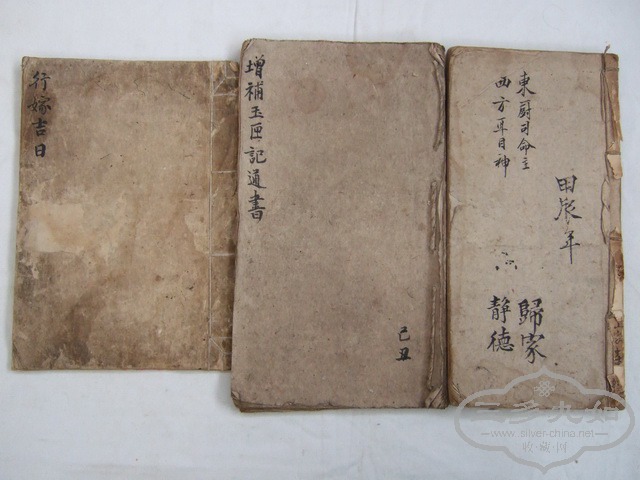 行嫁吉日
增補玉匣記通書
己丑
東厨司命主
西方耳目神
甲辰年
歸家
靜德
www.silver-china.net
收·藏·网